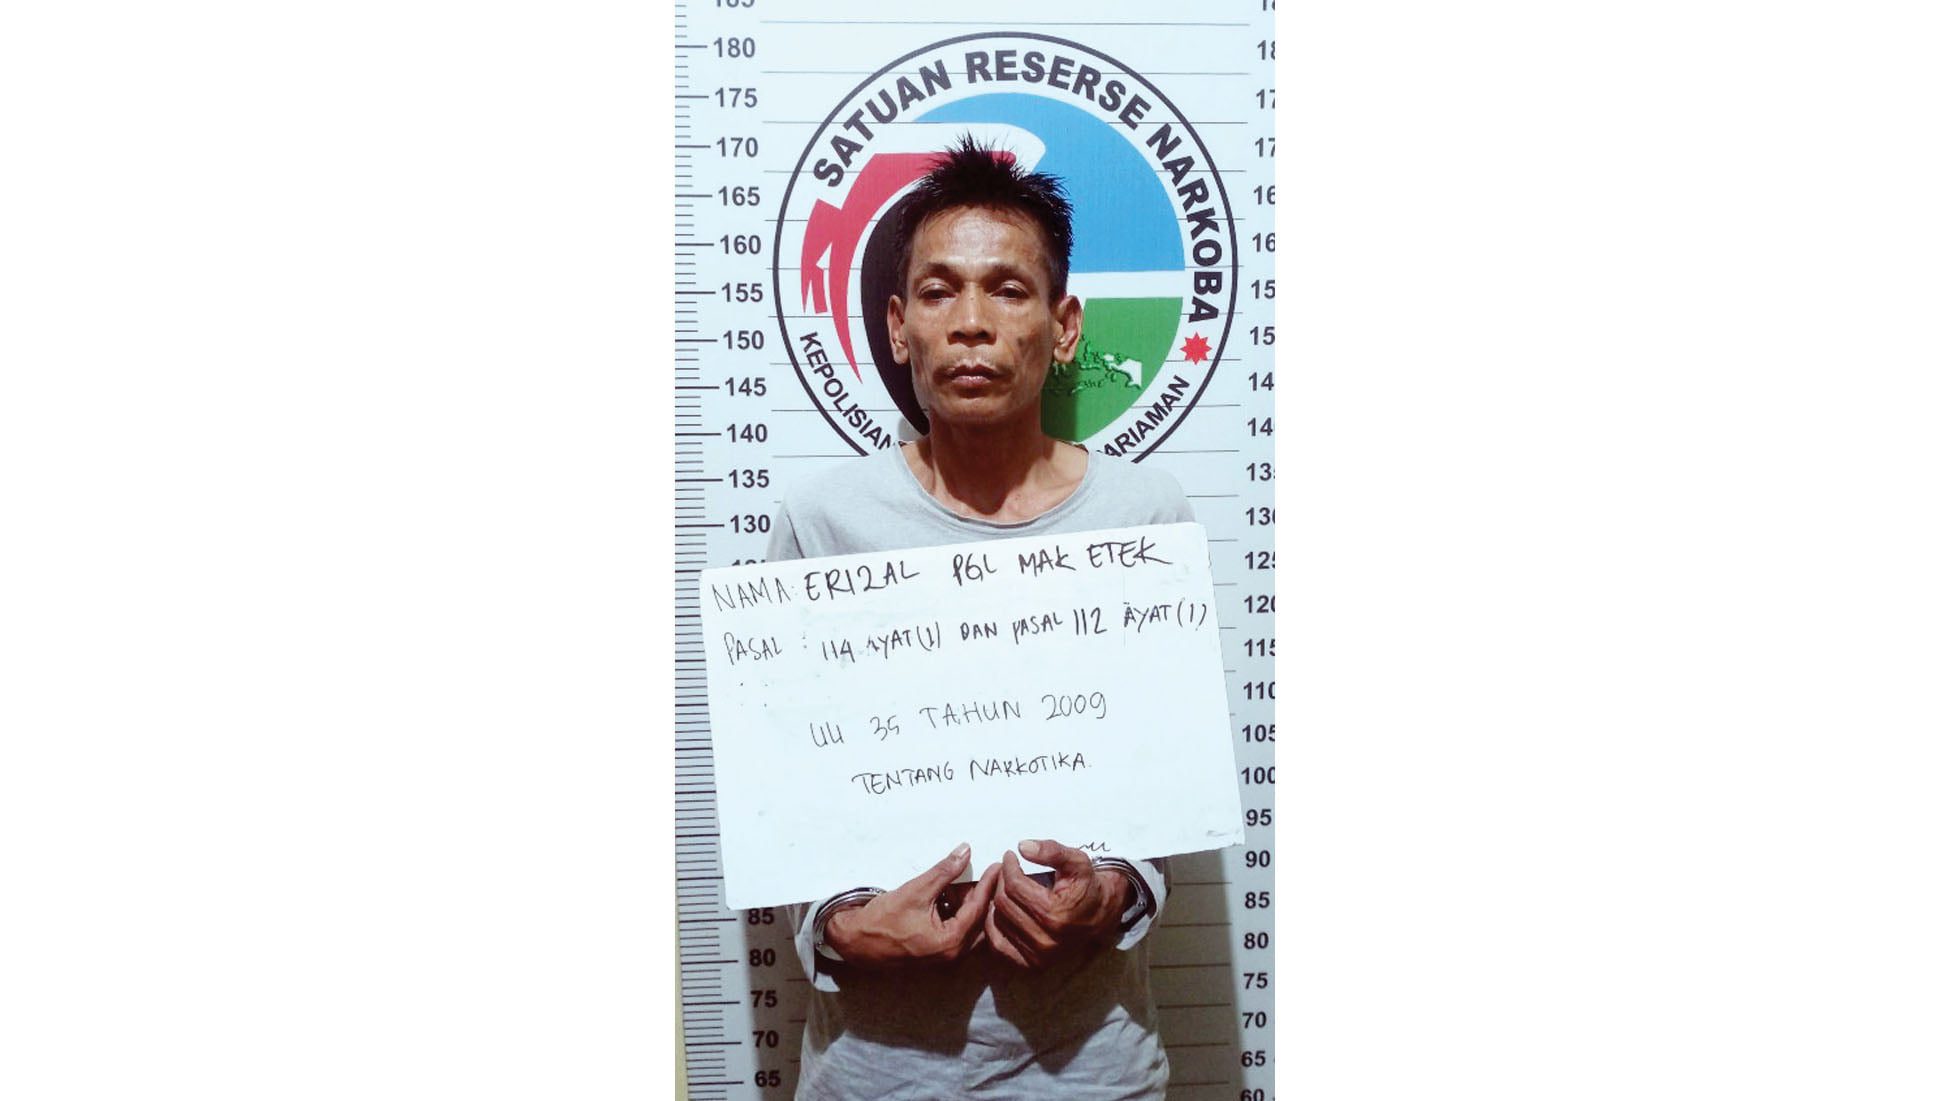 SATUAN RESERSE NARKOBA
KEPOLISIAN
ARIAMAN
NAMA: ERIZAL PGL MAK ETEK
PASAL : 114 AYAT (1) DAN PASAL 112 AYAT (1)
UU 35 TAHUN 2009
TENTANG NARKOTIKA.
180
175
170
165
160
155
150
145
140
135
130
85
80
75
70
65
125
120
115
110
105
100
95
90
85
80
75
70
65
60